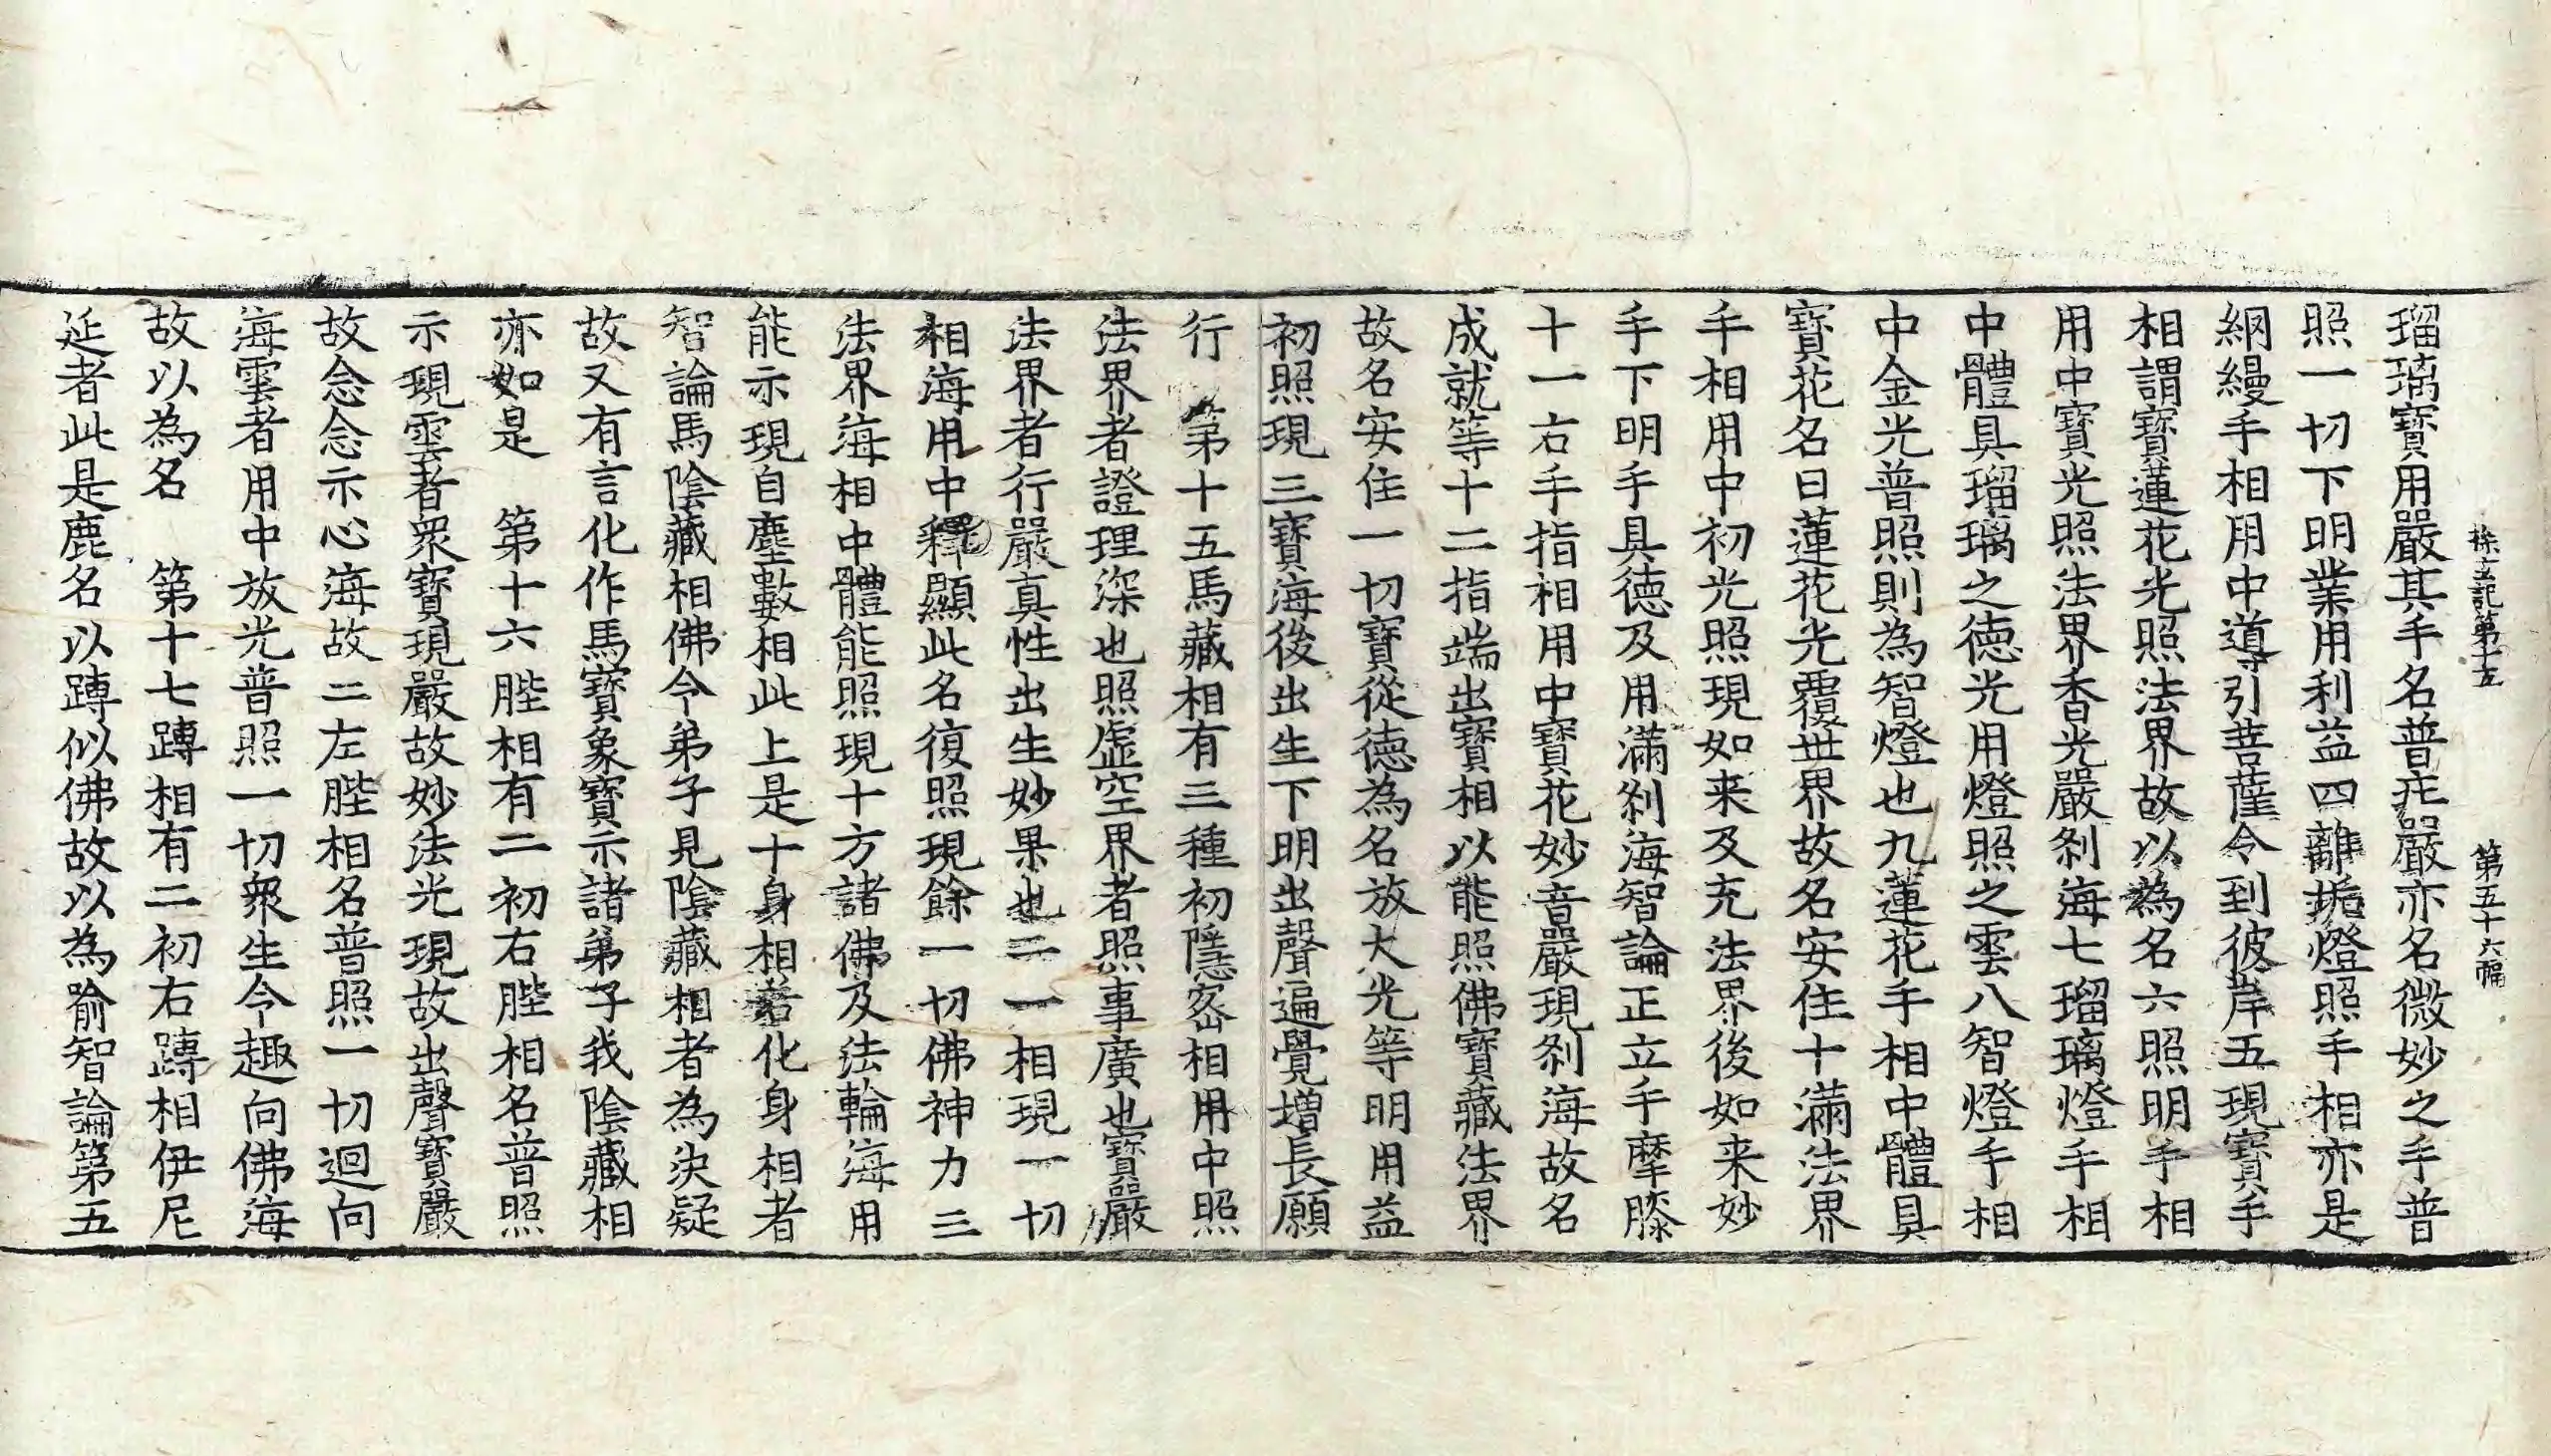 探玄記第十五 第五十六幅
瑠璃寶用嚴其手名普莊嚴亦名微妙之手普
照一切下明業用利益四離垢燈照手相亦是
網縵手相用中導引菩薩令到彼岸五現寶手
相謂寶蓮花光照法界故以為名六照明手相
用中寶光照法界香光嚴刹海七瑠璃燈手相
中體具瑠璃之德光用燈照之雲八智燈手相
中金光普照則為智燈也九蓮花手相中體具
寶花名曰蓮花光覆世界故名安住十滿法界
手相用中初光照現如来及充法界後如来妙
手下明手具德及用滿刹海智論正立手摩膝
十一右手指相用中寶花妙音嚴現刹海故名
成就等十二指端出寶相以能照佛寶藏法界
故名安住一切寶從德為名放大光等明用益
初照現三寶海後出生下明出聲遍覺增長願
行　第十五馬藏相有三種初隱密相用中照
法界者證理深也照虛空界者照事廣也寶嚴
法界者行嚴真性出生妙果也二一相現一切
相海用中釋顯此名復照現餘一切佛神力三
法界海相中體能照現十方諸佛及法輪海用
能示現自塵數相此上是十身相若化身相者
智論馬陰藏相佛令弟子見陰藏相者為決疑
故又有言化作馬寶象寶示諸弟子我陰藏相
亦如是　第十六䏶相有二初右䏶相名普照
示現雲者衆寶現嚴故妙法光現故出聲寶嚴
故念念示心海故二左䏶相名普照一切迴向
海雲者用中放光普照一切衆生令趣向佛海
故以為名　第十七蹲相有二初右蹲相伊尼
延者此是鹿名以蹲似佛故以為喻智論第五